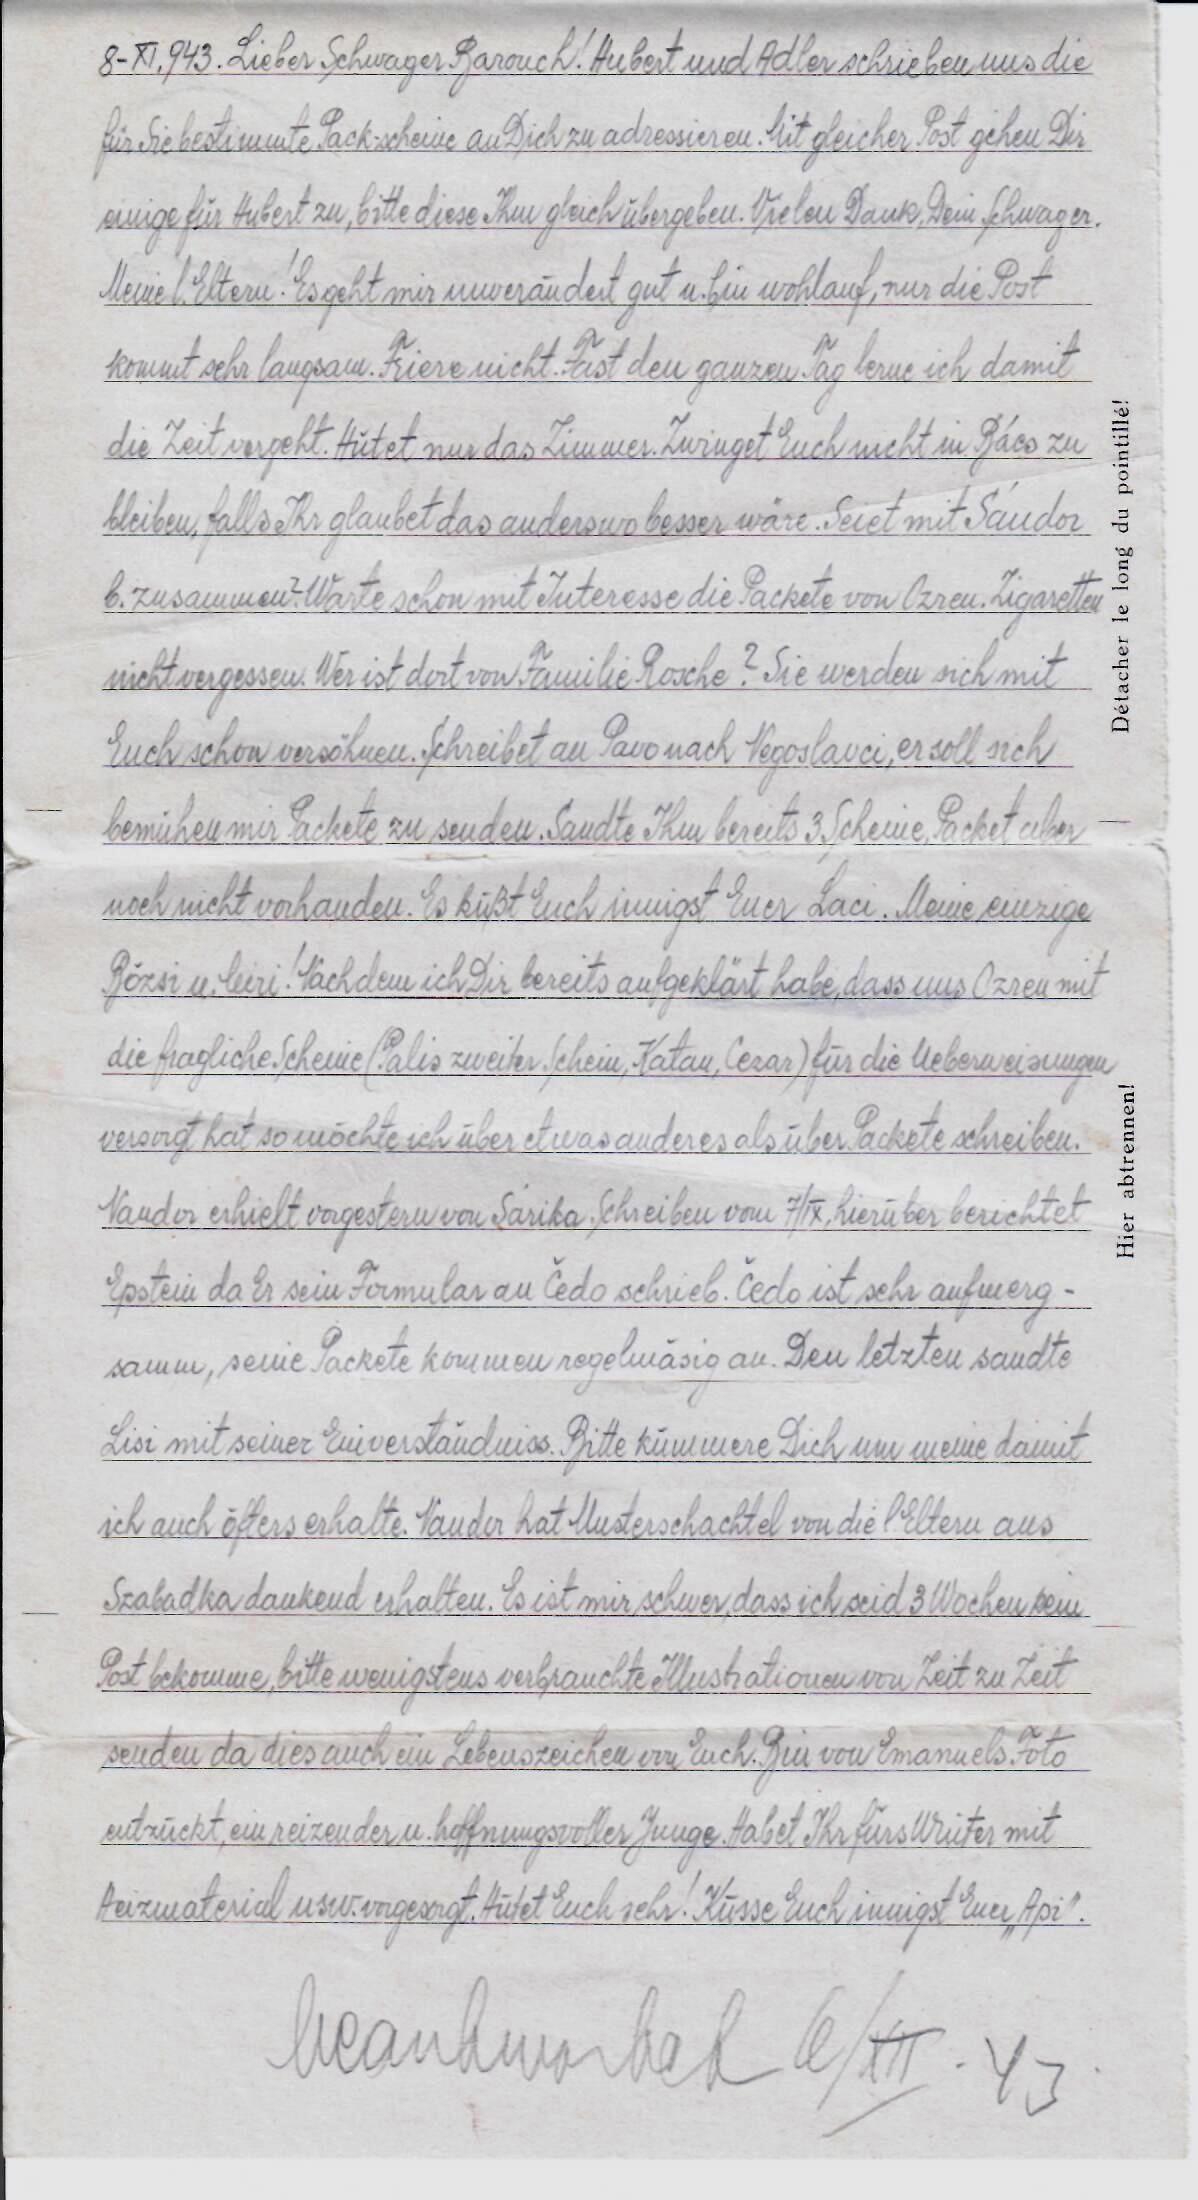 8-XI.943. Lieber Schwager Barouch! Hubert und Adler schrieben uns die
für Sie bestimmte Pack-scheine an Dich zu adressieren. Mit gleicher Post gehen Dir
einige für Hubert zu, bitte diese Ihm gleich übergeben. Vielen Dank, Dein Schwager.
Meine l. Eltern! Es geht mir unverändert gut u. bin wohlauf, nur die Post
kommt sehr langsam. Friere nicht. Fast den ganzen Tag lerne ich damit
die Zeit vergeht. Hütet nur das Zimmer. Zwinget Euch nicht in Bács zu
bleiben, falls Ihr glaubet das anderswo besser wäre. Seiet mit Sándor
b. zusammen? Warte schon mit Interesse die Packete von Ozren. Zigaretten
nicht vergessen. Wer ist dort von Familie Rosche? Sie werden sich mit
Euch schon versöhnen. Schreibet an Pavo nach Negoslavci, er soll sich
bemühen mir Packete zu senden. Sandte Ihm bereits 3 Scheine, Packet aber
noch nicht vorhanden. Es küßt Euch innigst Euer Laci. Meine einzige
Rózsi u. Miri! Nachdem ich Dir bereits aufgeklärt habe, dass uns Ozren mit
die fragliche Scheine (Palis zweiter Schein, Katan, Cezar) für die Ueberweisungen
versorgt hat so möchte ich über etwas anderes als über Packete schreiben.
Nandor erhielt vorgestern von Sárika Schreiben vom 7/IX, hierüber berichtet
Epstein da Er sein Formular an Čedo schrieb. Čedo ist sehr aufmerg-
samm, seine Packete kommen regelmäsig an. Den letzten sandte
Lisi mit seiner Einverständniss. Bitte kümmere Dich um meine damit
ich auch öfters erhalte. Nandor hat Musterschachtel von die l. Eltern aus
Szabadka dankend erhalten. Es ist mir schwer, dass ich seid 3 Wochen kein
Post bekomme, bitte wenigstens verbrauchte Illustrationen von Zeit zu Zeit
senden da dies auch ein Lebenszeichen von Euch. Bin von Emanuels Foto
entzückt, ein reizender u. hoffnungsvoller Junge. Habet Ihr fürs Winter mit
Heizmaterial usw. vorgesorgt. Hütet Euch sehr! Küsse Euch innigst Euer „Api".
beantwortet 6/XII - 43
Détacher le long du pointillé!
Hier abtrennen!